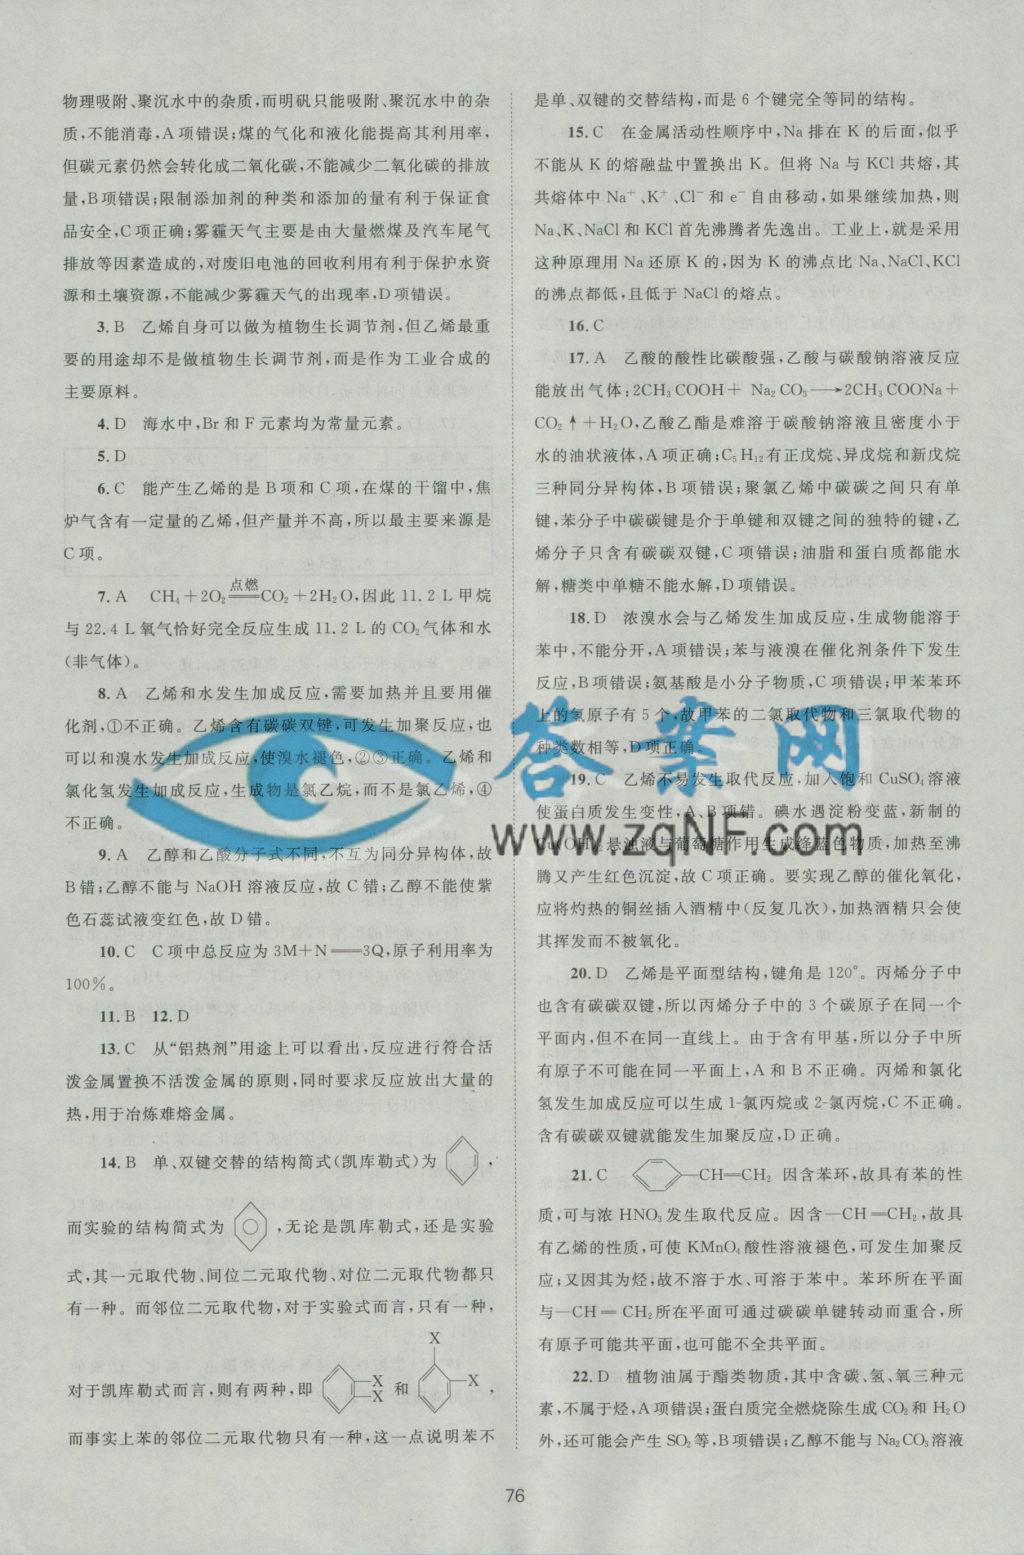 物理吸附、聚沉水中的杂质,而明矾只能吸附、聚沉水中的杂
质,不能消毒,A项错误;煤的气化和液化能提高其利用率,
但碳元素仍然会转化成二氧化碳,不能减少二氧化碳的排放
量,B项错误;限制添加剂的种类和添加的量有利于保证食
品安全,C项正确;雾霾天气主要是由大量燃煤及汽车尾气
排放等因素造成的,对废旧电池的回收利用有利于保护水资
源和土壤资源,不能减少雾霾天气的出现率,D项错误。
3. B 乙烯自身可以做为植物生长调节剂,但乙烯最重
要的用途却不是做植物生长调节剂,而是作为工业合成的
主要原料。
4. D 海水中,Br和F元素均为常量元素。
5. D
6. C 能产生乙烯的是B项和C项,在煤的干馏中,焦
炉气含有一定量的乙烯,但产量并不高,所以最主要来源是
C项。
7. A CH₄+2O₂ 点燃══ CO₂+2H₂O,因此11.2 L甲烷
与22.4 L氧气恰好完全反应生成11.2 L的CO₂气体和水
(非气体)。
8. A 乙烯和水发生加成反应,需要加热并且要用催
化剂,①不正确。乙烯含有碳碳双键,可发生加聚反应,也
可以和溴水发生加成反应,使溴水褪色,②③正确。乙烯和
氯化氢发生加成反应,生成物是氯乙烷,而不是氯乙烯,④
不正确。
9. A 乙醇和乙酸分子式不同,不互为同分异构体,故
B错;乙醇不能与NaOH溶液反应,故C错;乙醇不能使紫
色石蕊试液变红色,故D错。
10. C C项中总反应为3M+N══3Q,原子利用率为
100%。
11. B 12. D
13. C 从“铝热剂”用途上可以看出,反应进行符合活
泼金属置换不活泼金属的原则,同时要求反应放出大量的
热,用于冶炼难熔金属。
14. B 单、双键交替的结构简式(凯库勒式)为 ,
而实验的结构简式为 ,无论是凯库勒式,还是实验
式,其一元取代物、间位二元取代物、对位二元取代物都只
有一种。而邻位二元取代物,对于实验式而言,只有一种,
X
对于凯库勒式而言,则有两种,即 X X 和 X ,
而事实上苯的邻位二元取代物只有一种,这一点说明苯不
是单、双键的交替结构,而是6个键完全等同的结构。
15. C 在金属活动性顺序中,Na排在K的后面,似乎
不能从K的熔融盐中置换出K。但将Na与KCl共熔,其
共熔体中Na⁺、K⁺、Cl⁻和e⁻自由移动,如果继续加热,则
Na、K、NaCl和KCl首先沸腾者先逸出。工业上,就是采用
这种原理用Na还原K的,因为K的沸点比Na、NaCl、KCl
的沸点都低,且低于NaCl的熔点。
16. C
17. A 乙酸的酸性比碳酸强,乙酸与碳酸钠溶液反应
能放出气体;2CH₃COOH+ Na₂CO₃⟶2CH₃COONa+
CO₂↑+H₂O,乙酸乙酯是难溶于碳酸钠溶液且密度小于
水的油状液体,A项正确;C₅H₁₂有正戊烷、异戊烷和新戊烷
三种同分异构体,B项错误;聚氯乙烯中碳碳之间只有单
键,苯分子中碳碳键是介于单键和双键之间的独特的键,乙
烯分子只含有碳碳双键,C项错误;油脂和蛋白质都能水
解,糖类中单糖不能水解,D项错误。
18. D 浓溴水会与乙烯发生加成反应,生成物能溶于
苯中,不能分开,A项错误;苯与液溴在催化剂条件下发生
反应,B项错误;氨基酸是小分子物质,C项错误;甲苯苯环
上的氢原子有5个,故甲苯的二氯取代物和三氯取代物的
种类数相等,D项正确。
19. C 乙烯不易发生取代反应,加入饱和CuSO₄溶液
使蛋白质发生变性,A、B项错。碘水遇淀粉变蓝,新制的
Cu(OH)₂悬浊液与葡萄糖作用生成绛蓝色物质,加热至沸
腾又产生红色沉淀,故C项正确。要实现乙醇的催化氧化,
应将灼热的铜丝插入酒精中(反复几次),加热酒精只会使
其挥发而不被氧化。
20. D 乙烯是平面型结构,键角是120°。丙烯分子中
也含有碳碳双键,所以丙烯分子中的3个碳原子在同一个
平面内,但不在同一直线上。由于含有甲基,所以分子中所
有原子不可能在同一平面上,A和B不正确。丙烯和氯化
氢发生加成反应可以生成1-氯丙烷或2-氯丙烷,C不正确。
含有碳碳双键就能发生加聚反应,D正确。
21. C —CH═CH₂ 因含苯环,故具有苯的性
质,可与浓HNO₃发生取代反应。因含—CH═CH₂,故具
有乙烯的性质,可使KMnO₄酸性溶液褪色,可发生加聚反
应;又因其为烃,故不溶于水、可溶于苯中。苯环所在平面
与—CH═CH₂所在平面可通过碳碳单键转动而重合,所
有原子可能共平面,也可能不全共平面。
22. D 植物油属于酯类物质,其中含碳、氢、氧三种元
素,不属于烃,A项错误;蛋白质完全燃烧除生成CO₂和H₂O
外,还可能会产生SO₂等,B项错误;乙醇不能与Na₂CO₃溶液
答案网
www.zqNF.com
76